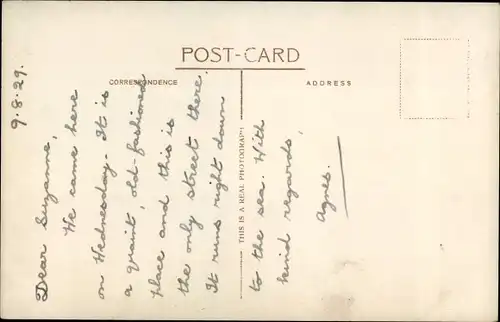 POST-CARD
CORRESPONDENCE
ADDRESS
THIS IS A REAL PHOTOGRAPH
9.8.29.
Dear Suzanne,
We came here
on Wednesday. It is
a quaint, old-fashioned
place and this is
the only street there.
It runs right down
to the sea. With
kind regards,
Agnes.